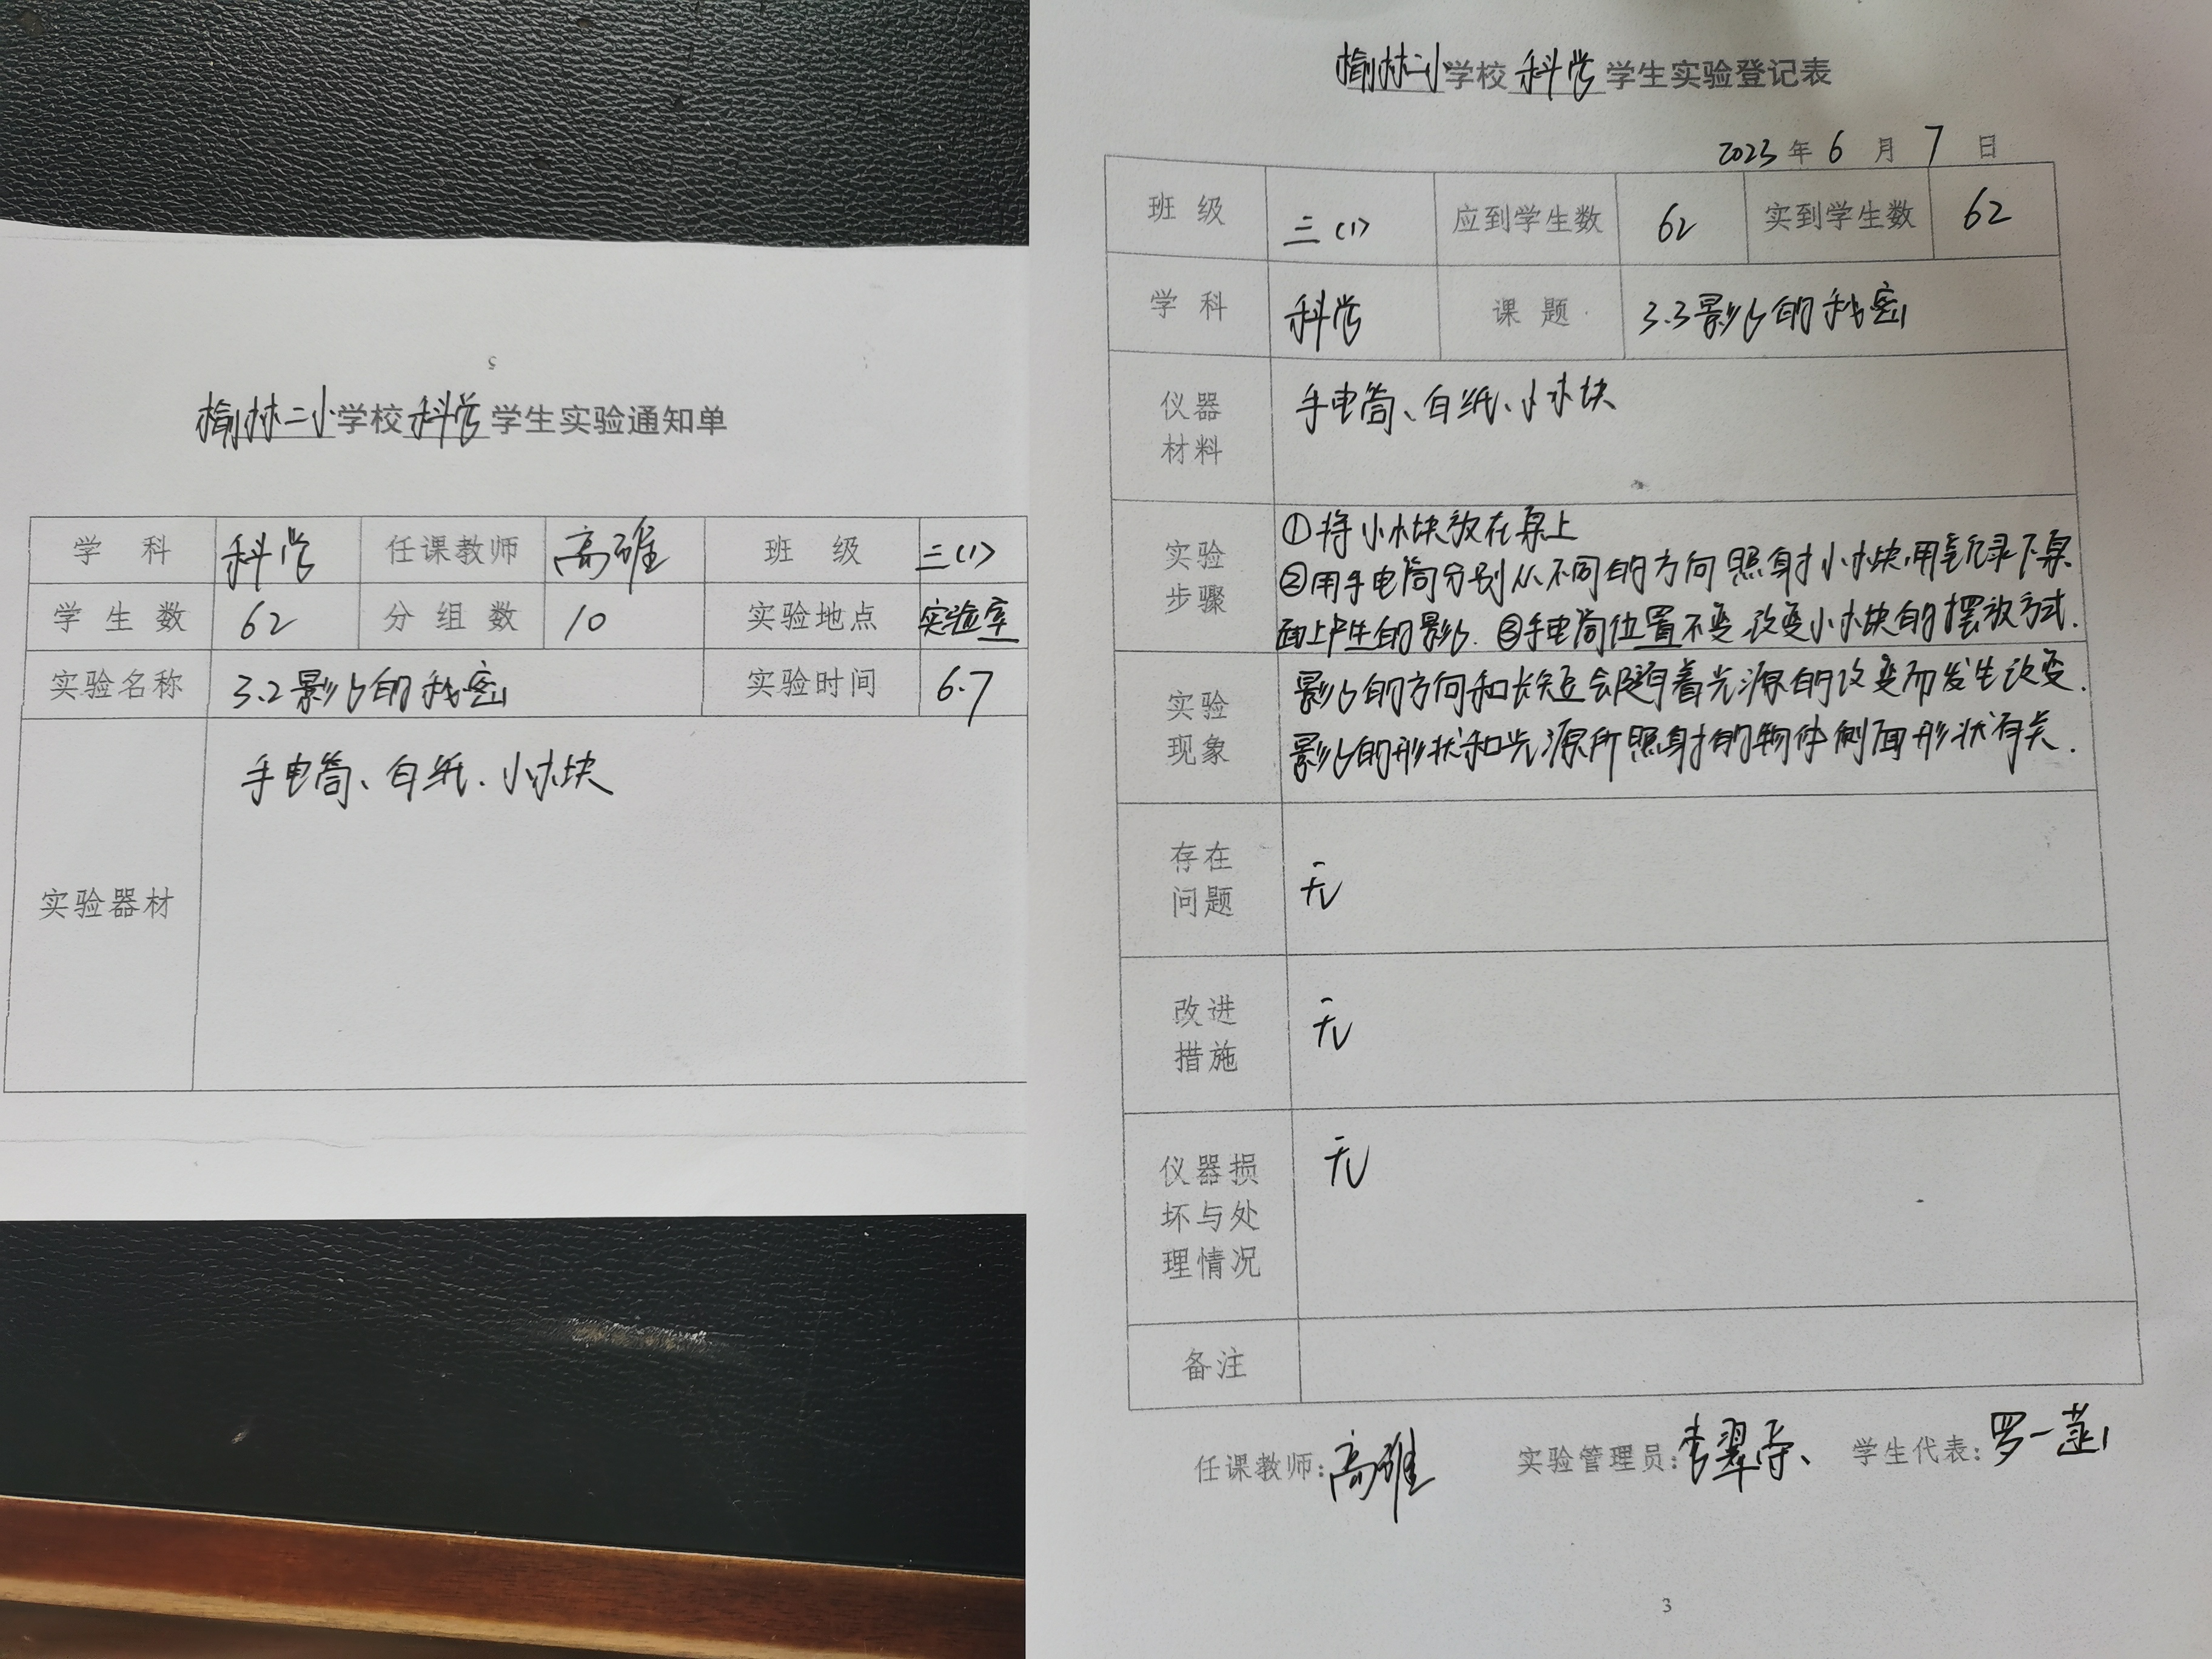 5
榆林二小学校科学学生实验通知单
学 科 科学 任课教师 高雄 班 级 三(1)
学 生 数 62 分 组 数 10 实验地点 实验室
实验名称 3.2影子的秘密 实验时间 6.7
实验器材 手电筒、白纸.小木块
榆林二小学校科学学生实验登记表
2023年6月7日
班 级 三(1) 应到学生数 62 实到学生数 62
学 科 科学 课 题 3.3影子的秘密
仪器
材料
手电筒、白纸、小木块
实验
步骤
①将小木块放在桌上
②用手电筒分别从不同的方向照射小木块.用笔记录下桌
面上产生的影子.③手电筒位置不变.改变小木块的摆放方式.
实验
现象
影子的方向和长短会随着光源的改变而发生改变.
影子的形状和光源所照射的物体侧面形状有关.
存在
问题
无
改进
措施
无
仪器损
坏与处
理情况
无
备注
任课教师:高雄 实验管理员:李翠 学生代表:罗一
3